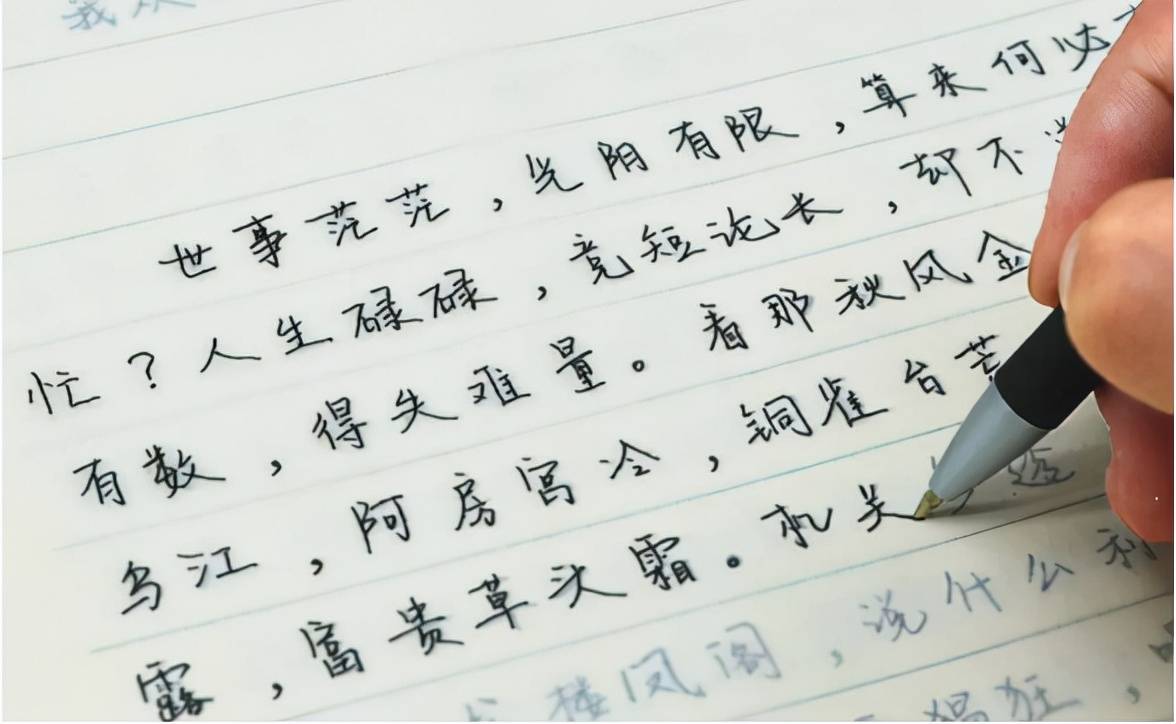 世事茫茫，光阴有限，算来何必
忙？人生碌碌，竞短论长，却不
有数，得失难量。看那秋风金
乌江，阿房宫冷，铜雀台荒
露，富贵草头霜。机关透
楼凤阁，说什么利
猖狂，